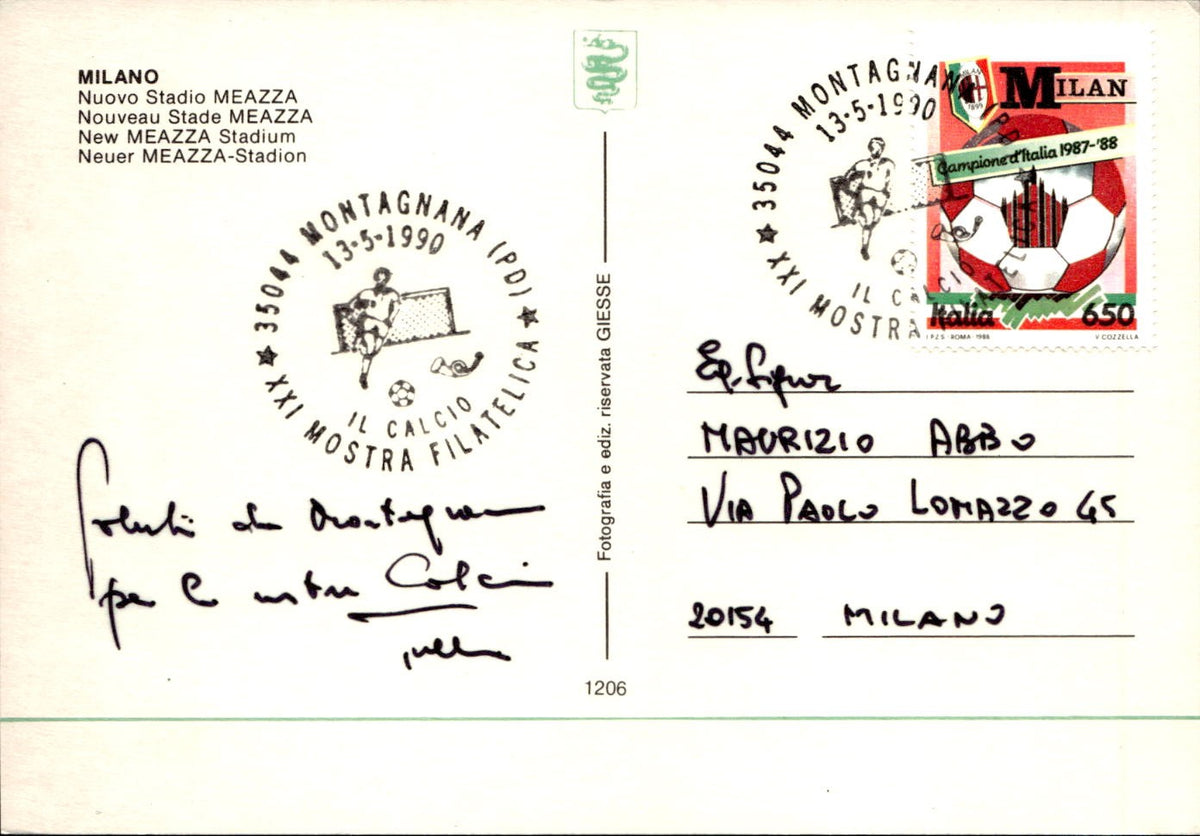 MILANO
Nuovo Stadio MEAZZA
Nouveau Stade MEAZZA
New MEAZZA Stadium
Neuer MEAZZA-Stadion
35044 MONTAGNANA (PD)
13-5-1990
IL CALCIO
XXI MOSTRA FILATELICA
Saluti da Montagnana
per la
Fotografia e ediz. riservata GIESSE
1206
35044 MONTAGNANA (PD)
13-5-1990
IL CALCIO
XXI MOSTRA FILATELICA
MILAN
1899
MILAN
Campione d'Italia 1987-'88
Italia 650
I.P.Z.S.-ROMA-1988 V. COZZELLA
Eg. Signor
MAURIZIO ABBO
VIA PAOLO LOMAZZO 45
20154 MILANO